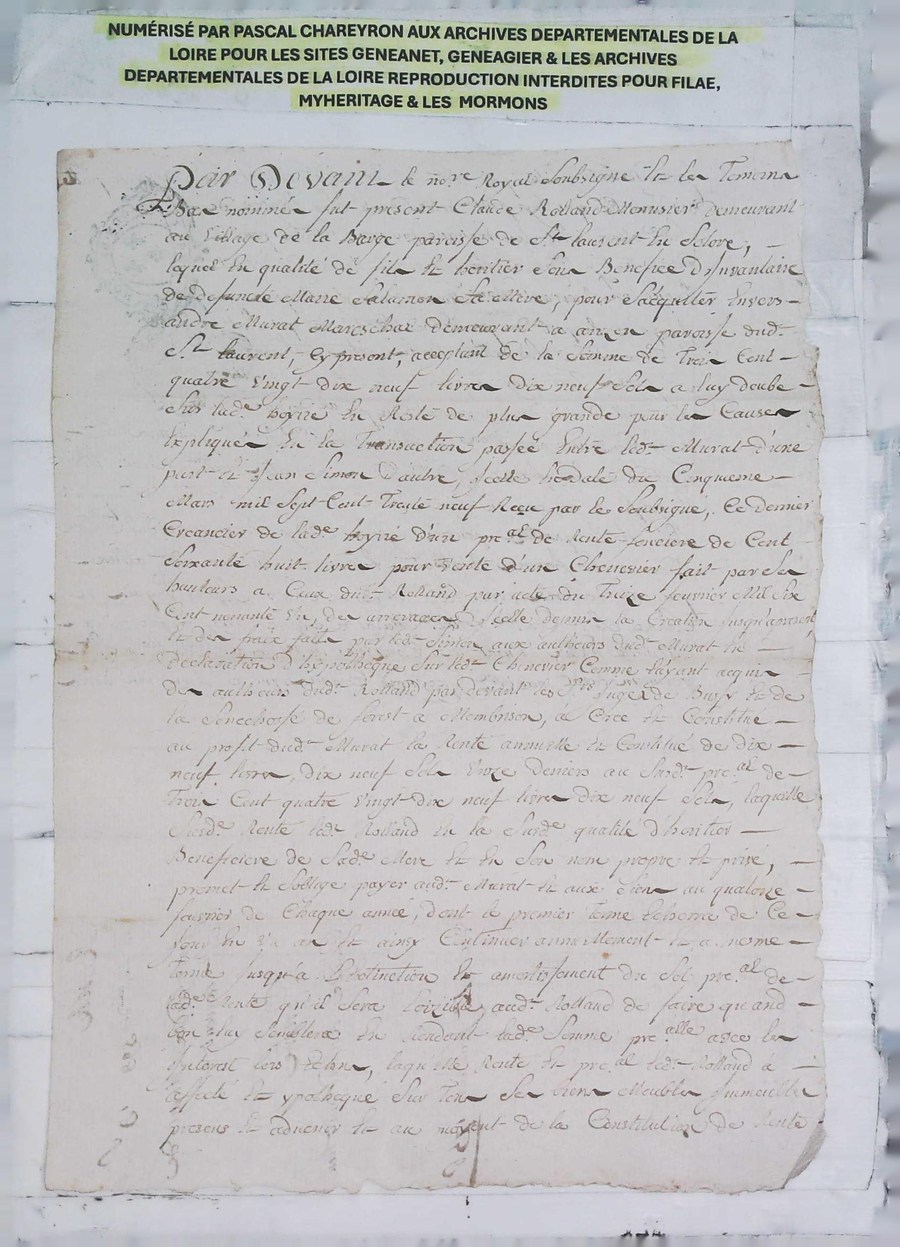 NUMÉRISÉ PAR PASCAL CHAREYRON AUX ARCHIVES DEPARTEMENTALES DE LA
LOIRE POUR LES SITES GENEANET, GENEAGIER & LES ARCHIVES
DEPARTEMENTALES DE LA LOIRE REPRODUCTION INTERDITES POUR FILAE,
MYHERITAGE & LES MORMONS
Par Devant le no.re Royal Soubsigné Et les Temoins
Bas nommés fut présent Claude Rolland Menusier demeurant
au village de la Barge paroisse de St laurent En Solore, -
lequel En qualité de fils Et heritier Sous Benefice d'Invantaire
de defuncte Marie Salamon Sa Mere, pour S'acquitter Envers -
andré Murat Mareschal demeurant a paroisse dud.t
S.t laurent, Cy present, acceptant de la Somme de Trois Cent -
quatre vingt dix neuf livres dix neuf Sols a luy deube -
Sur lad.e hoyrie En Reste de plus grande pour les Causes
Expliqués En la Transaction passée Entre led.t Murat d'une
part Et Jean Simon d'autre, Icelle En datte du Cinquieme -
Mars mil Sept Cent Trente neuf Reçu par le Soubsigné, Ce dernier
Creancier de lad.e hoyrie d'un pr.al de Rente fonciere de Cent -
Soixante huit livres pour vente d'un Chenevier fait par Ses
hauteurs a Ceux dud.t Rolland par acte du Treize fevrier Mil Six
Cent nonante un, des arrerages d'Icelle depuis la Creation Jusqu'apresent
Et des fraix faits par led.t Simon aux autheurs dud.t Murat En -
declaration d'hypotheque Sur led.t Chenevier Comme l'ayant acquis
des autheurs dud.t Rolland pardevant les Juges de Et de
la Senechossé de forest a Mombrison, a Cree Et Constitué -
au profit dud.t Murat la Rente annuelle Et Constitué de dix -
neuf livres, dix neuf Sols onze deniers au Surd.t pr.al de -
Trois Cent quatre vingt dix neuf livres dix neuf Sols, laquelle
Surd.e Rente led.t Rolland En la Surd.e qualité d'heritier -
Beneficiere de Sad.e Mere Et En Son nom propre Et privé, -
promet Et S'oblige payer aud.t Murat Et aux Siens au quatorze -
fevrier de Chaque année, dont le premier Terme Echerra de Ce -
Jour En un an Et ainsy Continuer annuellement Et a mesme -
Terme Jusqu'a L'Extinction Et amortissement du Sol pr.al de -
lad.e Rente qu'il Sera loizible aud.t Rolland de faire quand -
bon luy Semblera En Rendant lad.e Somme pr.alle avec les
Interest lors Echus, laquelle Rente Et pr.al led.t Rolland a -
affecté Et ypothequé Sur Tous Ses biens Meubles Immeubles
presens Et advenir Et au moyent de la Constitution de Rente